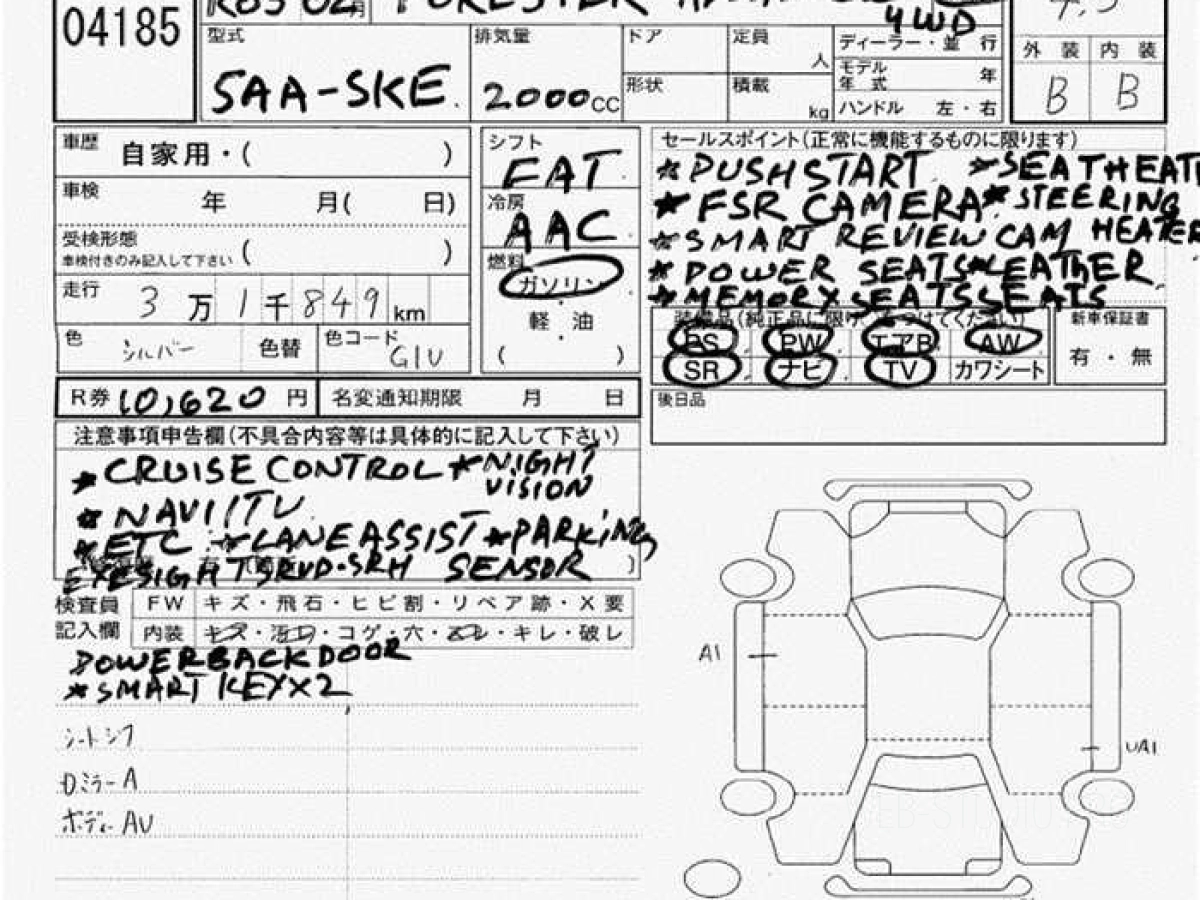 04185
R03 02月 FORESTER
4WD
型式 SAA-SKE
排気量 2000CC
ドア
定員 人
形状
積載 kg
ディーラー・並行
モデル年式 年
ハンドル 左・右
4.5
外装 内装
B B
車歴 自家用・( )
車検 年 月( 日)
受検形態 ( )
車検付きのみ記入して下さい
走行 3万1千849km
色 シルバー 色替 色コード G1U
シフト FAT
冷房 AAC
燃料 ガソリン
軽・油
( )
セールスポイント(正常に機能するものに限ります)
*PUSHSTART *SEATHEAT
*FSR CAMERA *STEERING
*SMART REVIEW CAM HEATER
*POWER SEATS *LEATHER
*MEMORY SEATS SEATS
装備品(純正品に限り、をつけてください)
PS PW エアB AW
SR ナビ TV カワシート
新車保証書
有・無
R券 10,620円 名変通知期限 月 日
後日品
注意事項申告欄(不具合内容等は具体的に記入して下さい)
*CRUISE CONTROL *NIGHT
VISION
*NAVI/TV
*ETC *LANE ASSIST *PARKING
EYESIGHT SRVD・SRH SENSOR
検査員 FW キズ・飛石・ヒビ割・リペア跡・X要
記入欄 内装 キズ・汚れ・コゲ・穴・スレ・キレ・破レ
POWERBACKDOOR
*SMART KEYX2
シートシワ
Dミラー A
ボディー AU
A1
UA1